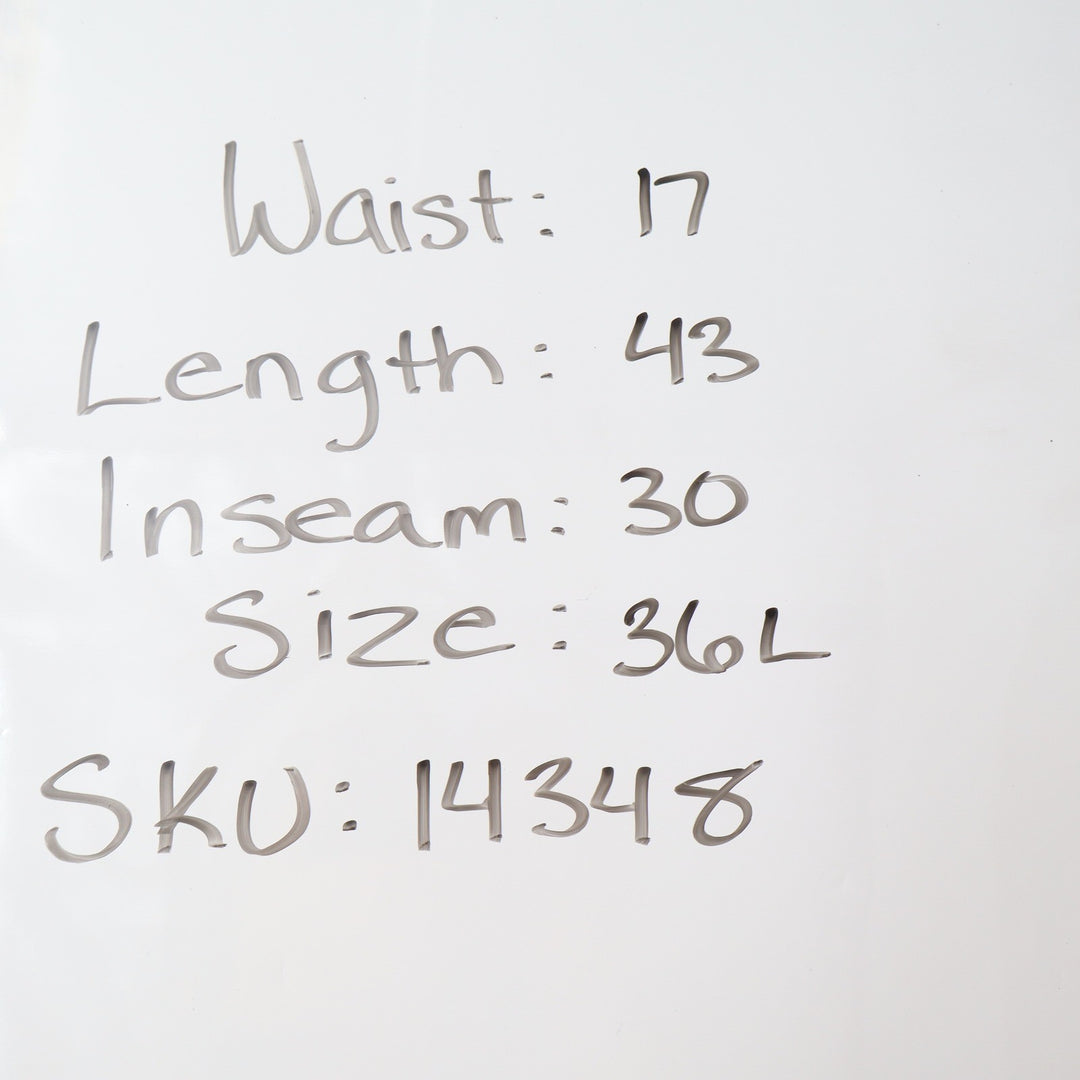 Waist: 17
Length: 43
Inseam: 30
Size: 36L
SKU: 14348